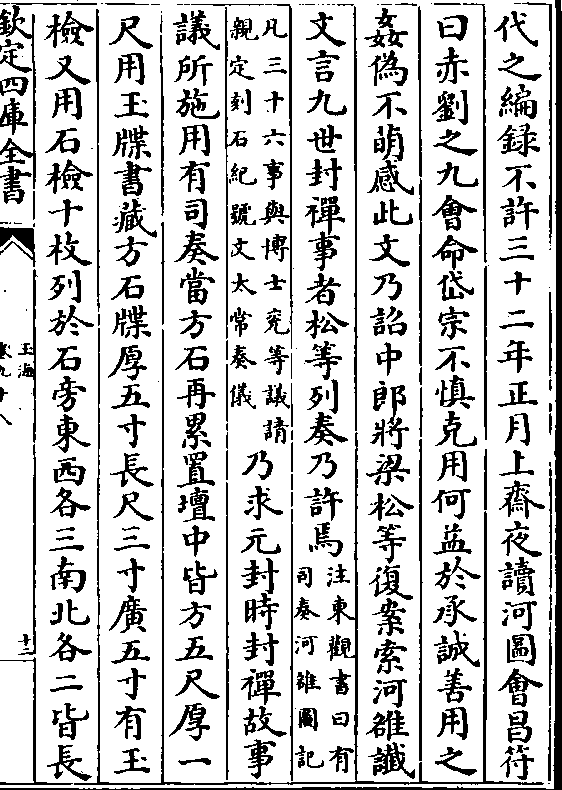 代之編録不許三十二年正月上齋夜讀河圖會昌符
曰赤劉之九會命岱宗不慎克用何益於承誠善用之
姦偽不萌感此文乃詔中郎將梁松等復案索河雒讖
文言九世封禪事者松等列奏乃許焉注東觀書曰有司奏河雒圖記
凡三十六事與博士充等議請親定刻石紀號文太常奏儀乃求元封時封禪故事
議所施用有司奏當方石再累置壇中皆方五尺厚一
尺用玉牒書藏方石牒厚五寸長尺三寸廣五寸有玉
檢又用石檢十枚列於石旁東西各三南北各二皆長
欽定四庫全書
玉海
卷九十八
十二